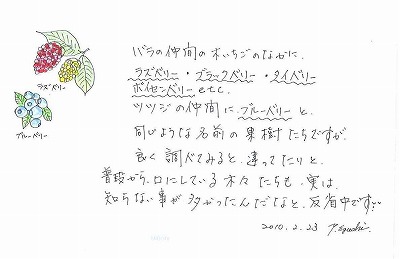 バラの仲間の木いちごのなかに、
ラズベリー・ブラックベリー・タイベリー
ボイセンベリー etc.
ツツジの仲間に、ブルーベリーと、
同じような名前の果樹たちですが、
良く調べてみると、違ってたりと、
普段から、口にしている木々たちも、実は、
知らない事が多かったんだなと、反省中です…
2010.2.23
ラズベリー
ブルーベリー